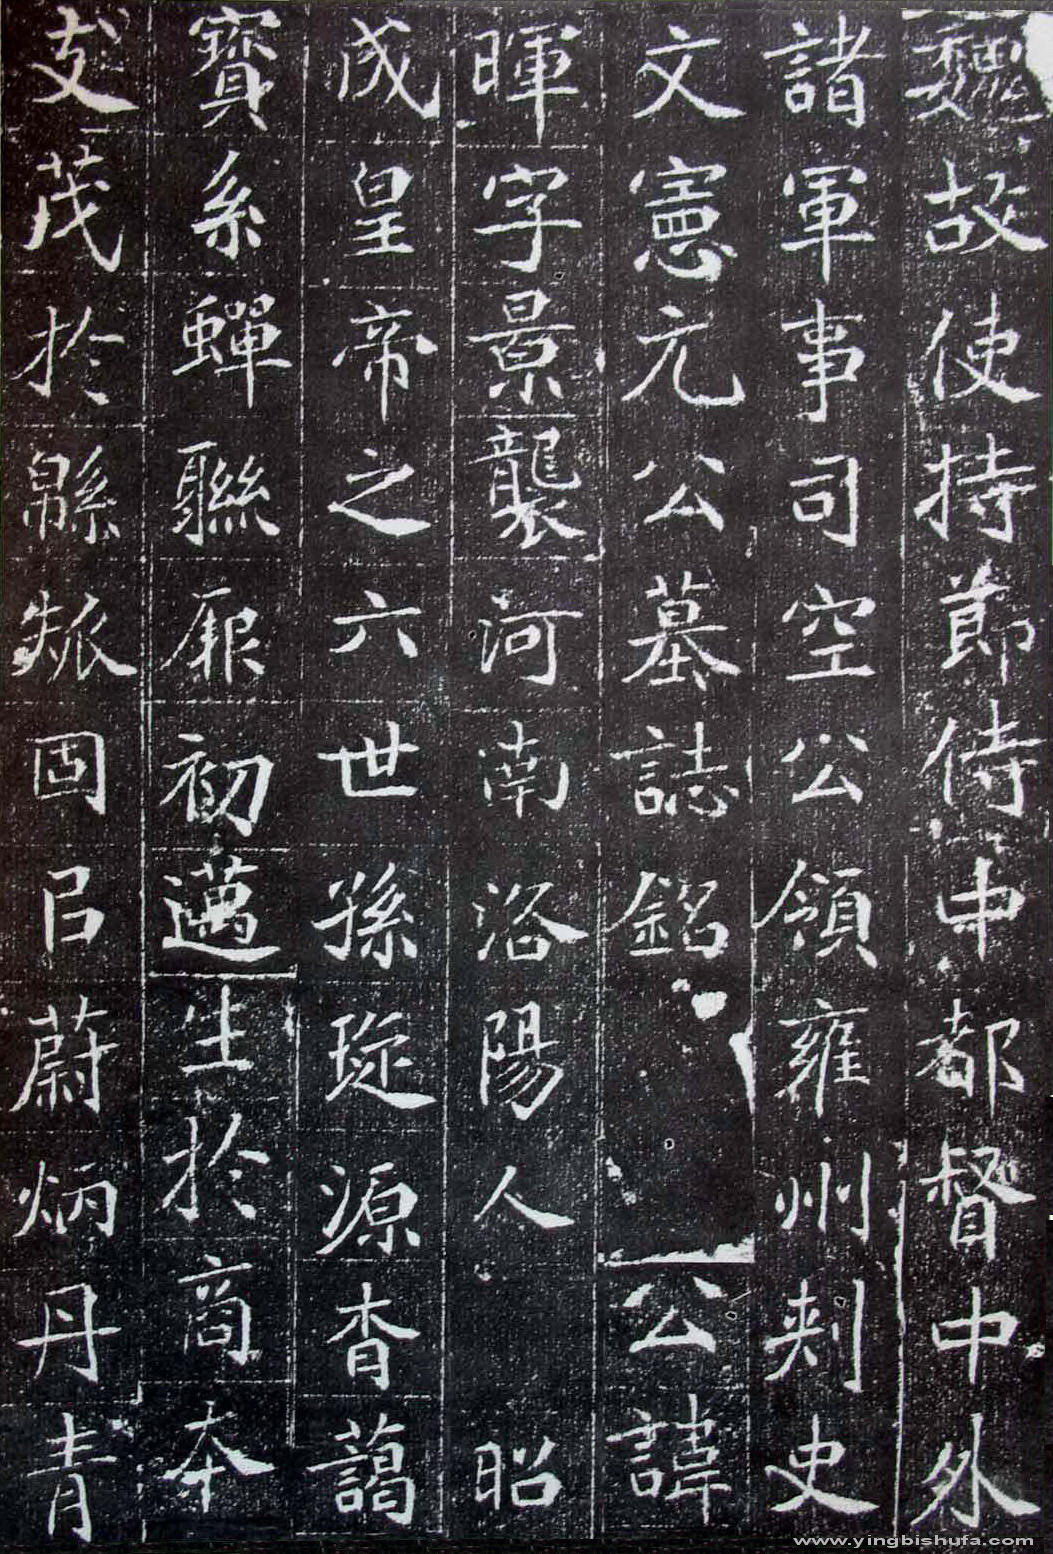 魏故使持節侍中都督中外
諸軍事司空公領雍州刾史
文憲元公墓誌銘 公諱
暉字景襲河南洛陽人 昭
成皇帝之六世孫琁源杳藹
寶系蟬聯厥初邁生於商夲
支茂於緜瓞固㠯蔚炳丹青
www.yingbishufa.com